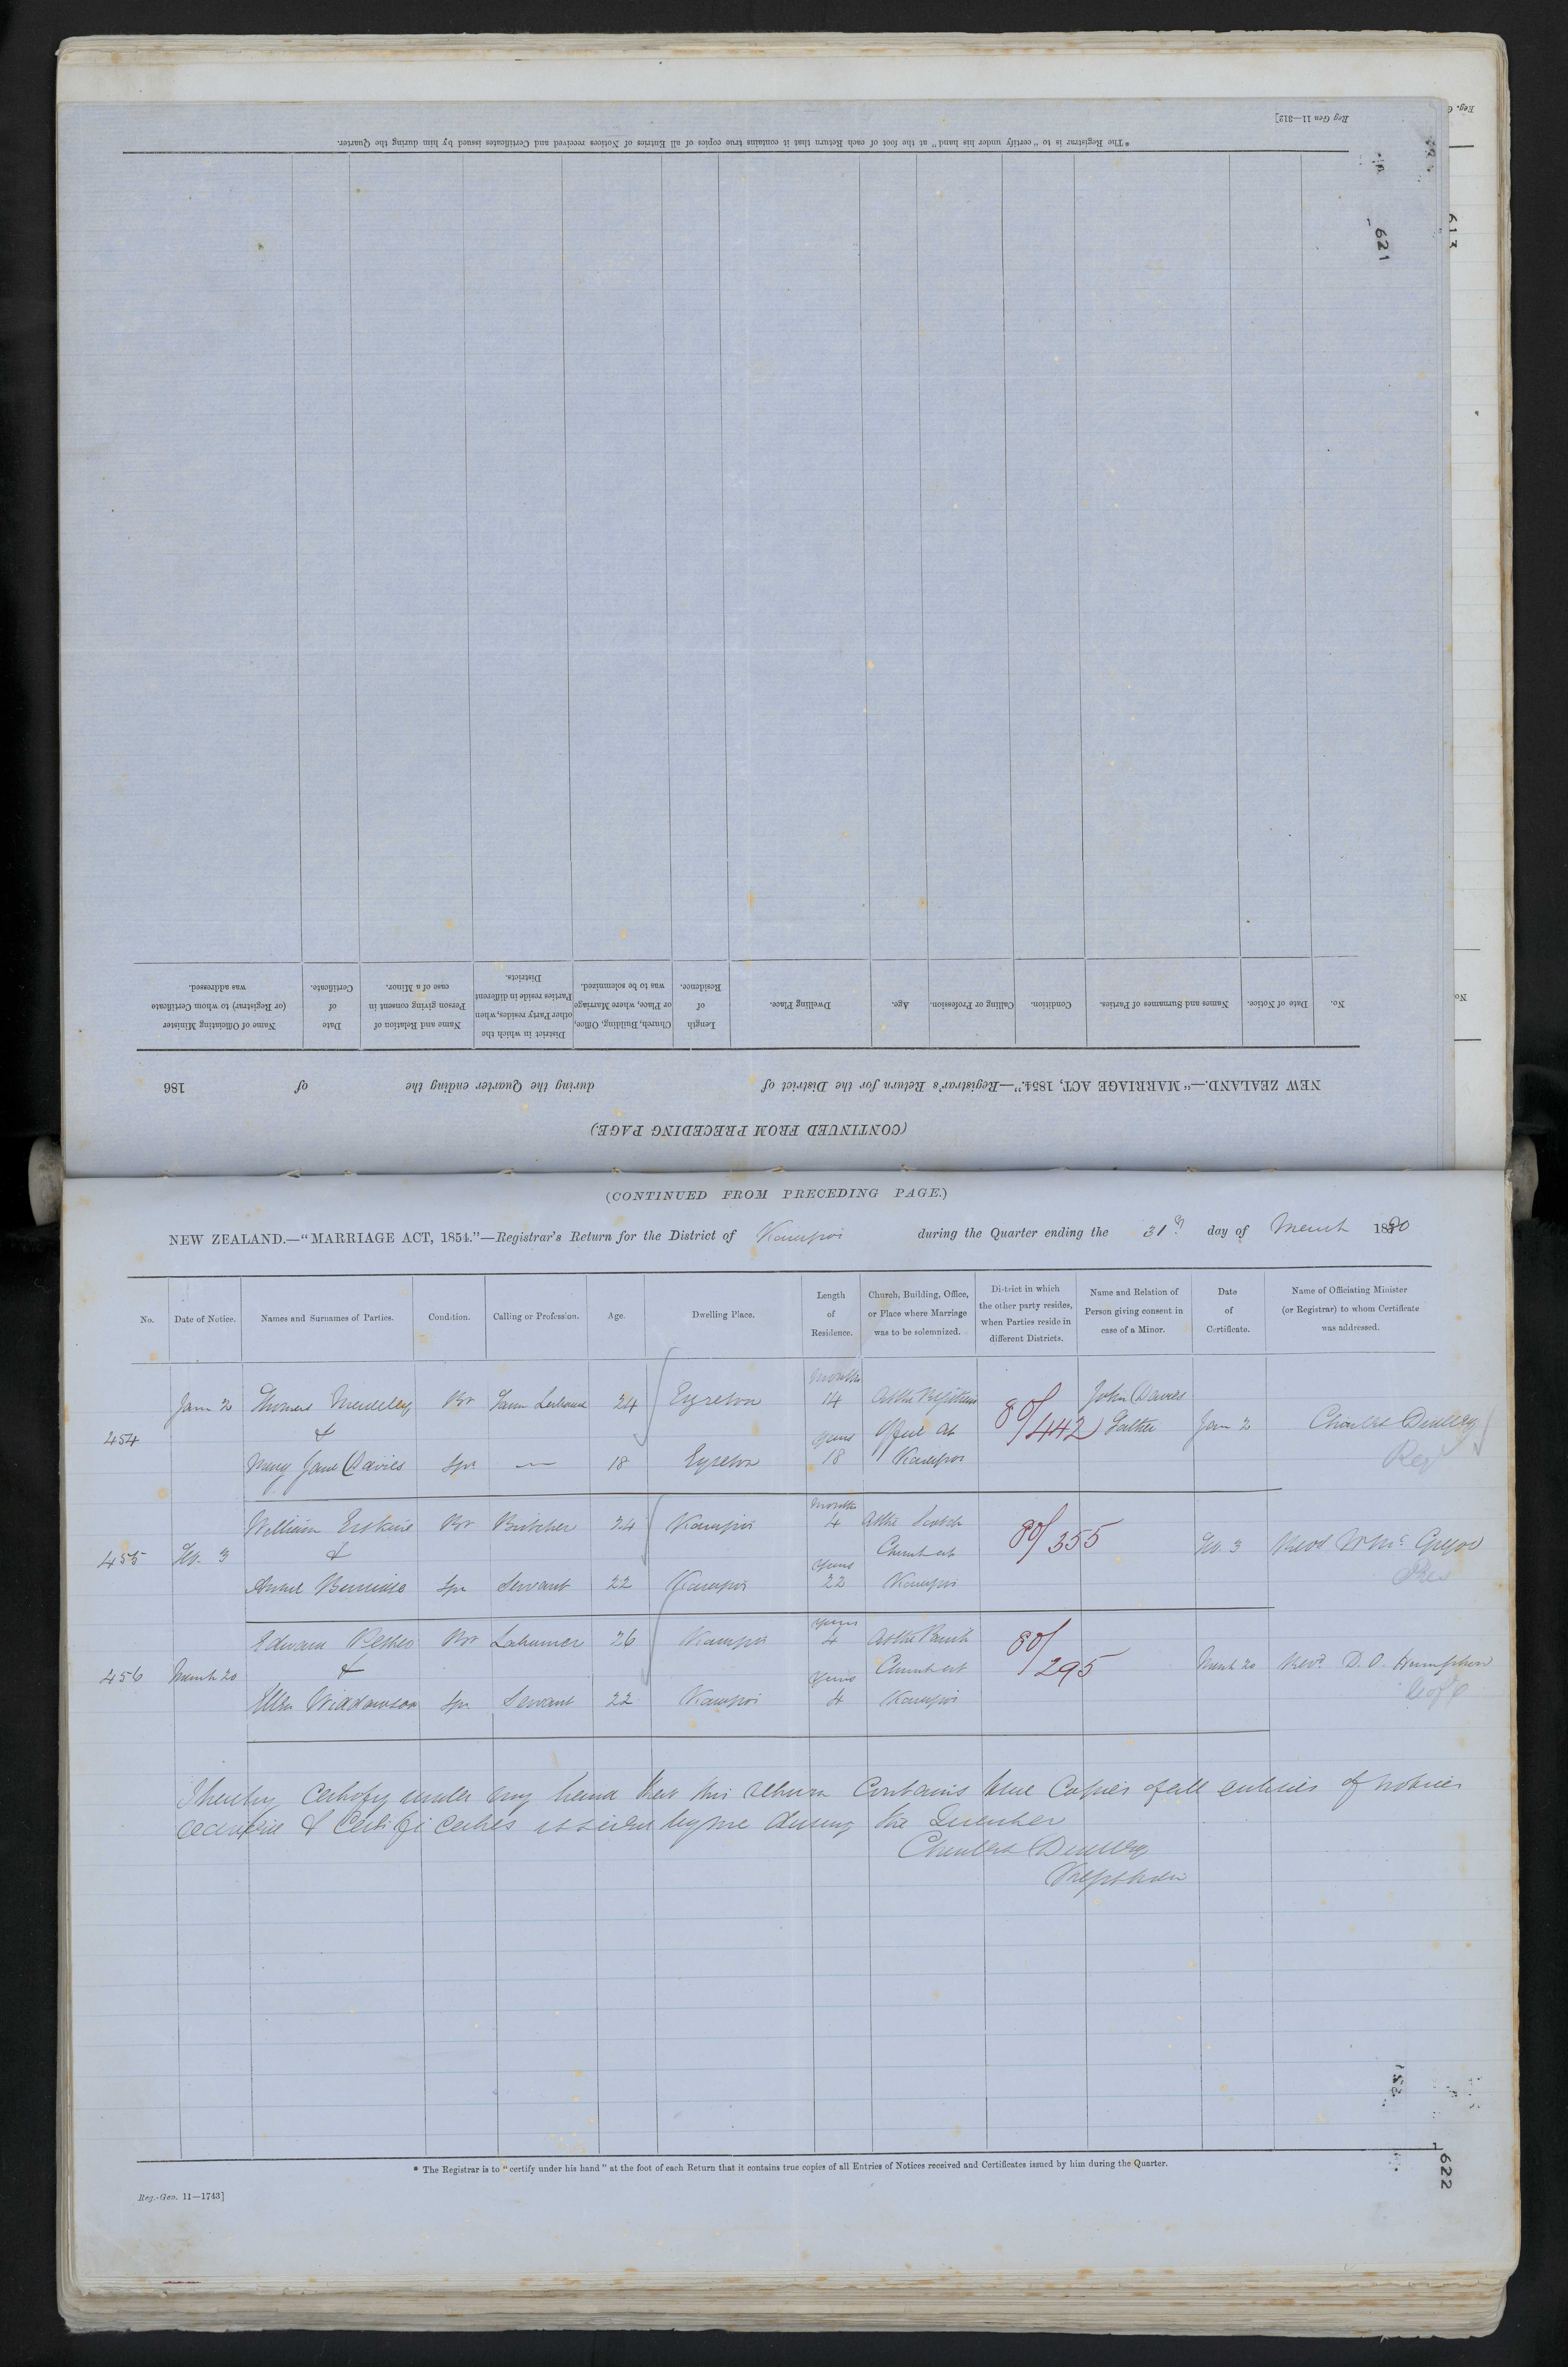 Reg Gen 11—312]
* The Registrar is to "certify under his hand" at the foot of each Return that it contains true copies of all Entries of Notices received and Certificates issued by him during the Quarter.
621
613
No.
Date of Notice.
Names and Surnames of Parties.
Condition.
Calling or Profession.
Age.
Dwelling Place.
Length of Residence.
Church, Building, Office, or Place, where Marriage was to be solemnized.
District in which the other Party resides, when Parties reside in different Districts.
Name and Relation of Person giving consent in case of a Minor.
Date of Certificate.
Name of Officiating Minister (or Registrar) to whom Certificate was addressed.
NEW ZEALAND.—"MARRIAGE ACT, 1854."—Registrar's Return for the District of during the Quarter ending the of 186
(CONTINUED FROM PRECEDING PAGE.)
(CONTINUED FROM PRECEDING PAGE.)
NEW ZEALAND.—"MARRIAGE ACT, 1854."—Registrar's Return for the District of Kaiapoi during the Quarter ending the 31st day of March 1880
No. Date of Notice. Names and Surnames of Parties. Condition. Calling or Profession. Age. Dwelling Place. Length of Residence. Church, Building, Office, or Place where Marriage was to be solemnized. District in which the other party resides, when Parties reside in different Districts. Name and Relation of Person giving consent in case of a Minor. Date of Certificate. Name of Officiating Minister (or Registrar) to whom Certificate was addressed.
months
Jany 2 Thomas Br Farm Labourer 24 Eyreton 14 At the Registrars John Davies
454 & years Office at 80/442 Father Jany 2 Charles Dudley
Mary Jane Davies Spr — 18 Eyreton 18 Kaiapoi Reg
months
William Erskine Br Butcher 24 Kaiapoi 4 At the Scotch
455 Feb. 3 & years Church at 80/355 Feb. 3 Revd W McGregor
Annie Spr Servant 22 Kaiapoi 22 Kaiapoi Pres
years
Edward Br Labourer 26 Kaiapoi 4 At the Parish
456 March 20 & years Church at 80/295 March 20 Revd. D. O. Humphrey
Ellen Widdowson Spr Servant 22 Kaiapoi 4 Kaiapoi C of E
I hereby certify under my hand that this return contains true Copies of all entries of notices
received & Certificates issued by me during the Quarter
Charles Dudley
Registrar
* The Registrar is to "certify under his hand" at the foot of each Return that it contains true copies of all Entries of Notices received and Certificates issued by him during the Quarter.
Reg.-Gen. 11—1743]
622